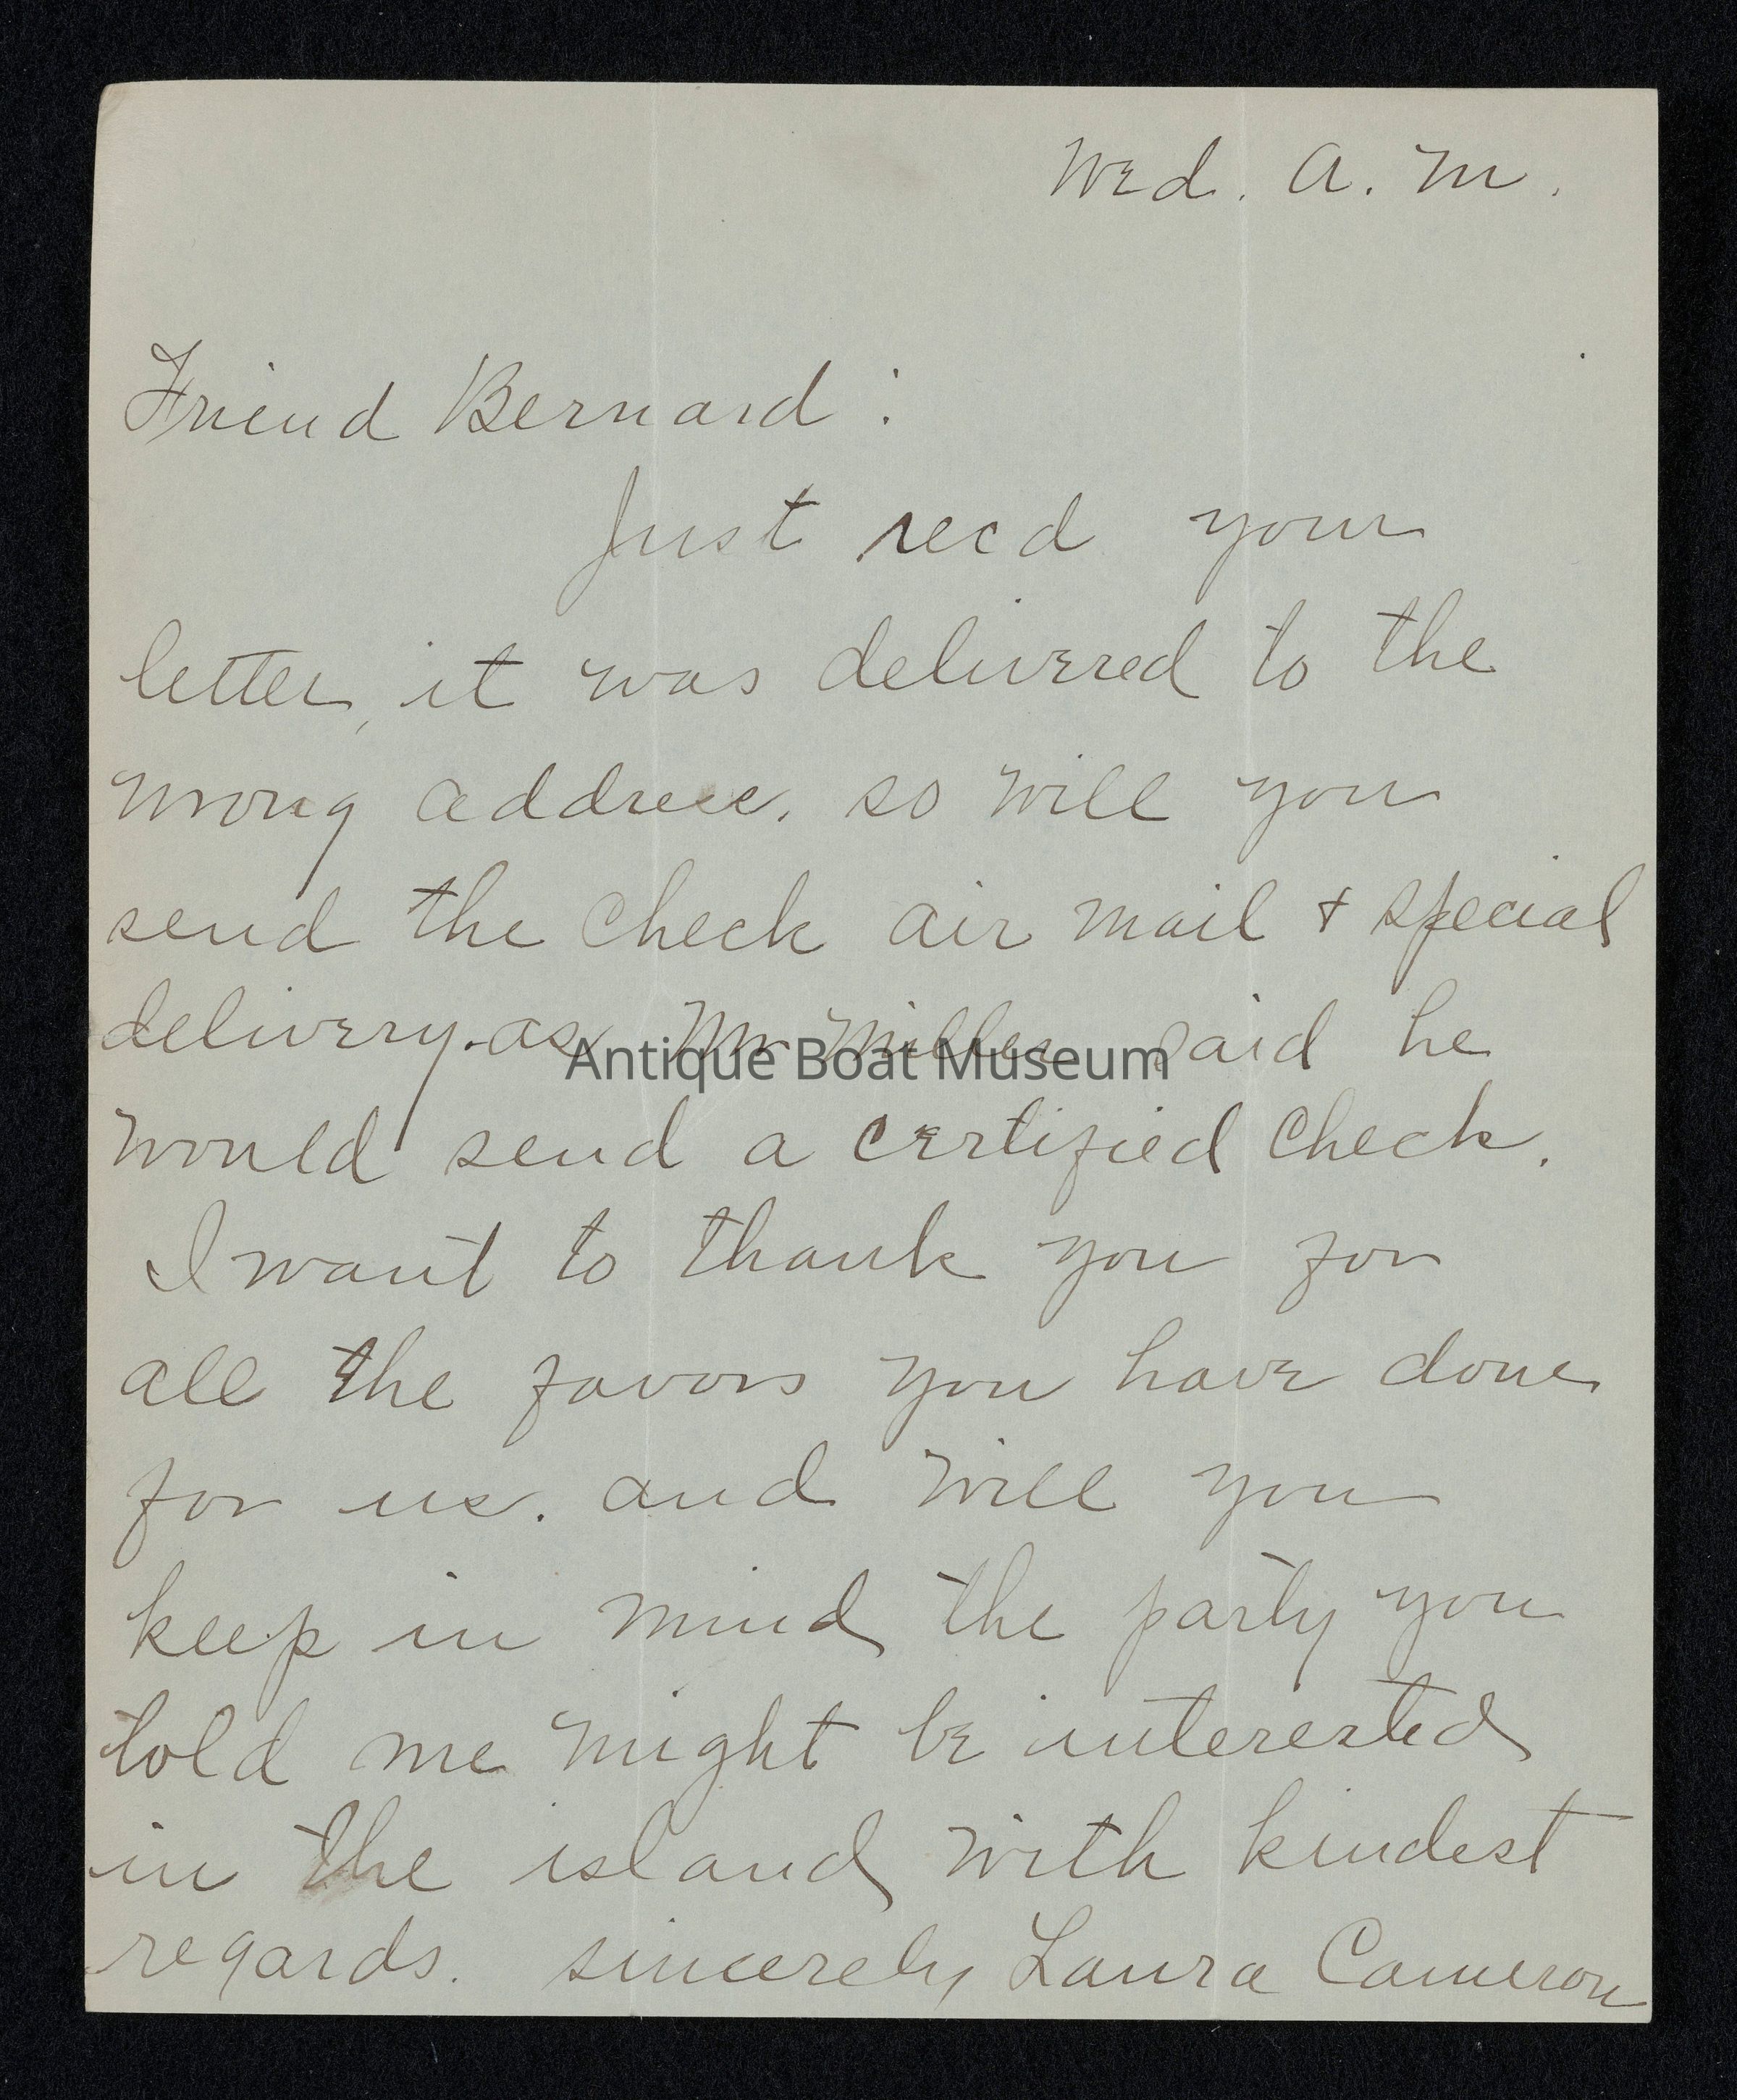 Wed. A. M.
Friend Bernard :
Just recd your
letter, it was delivered to the
wrong address. so will you
send the check air mail + special
delivery. as Mr Miller said he
Antique Boat Museum
would send a certified check.
I want to thank you for
all the favors you have done
for us. and will you
keep in mind the party you
told me might be interested
in the island with kindest
regards. sincerely Laura Cameron